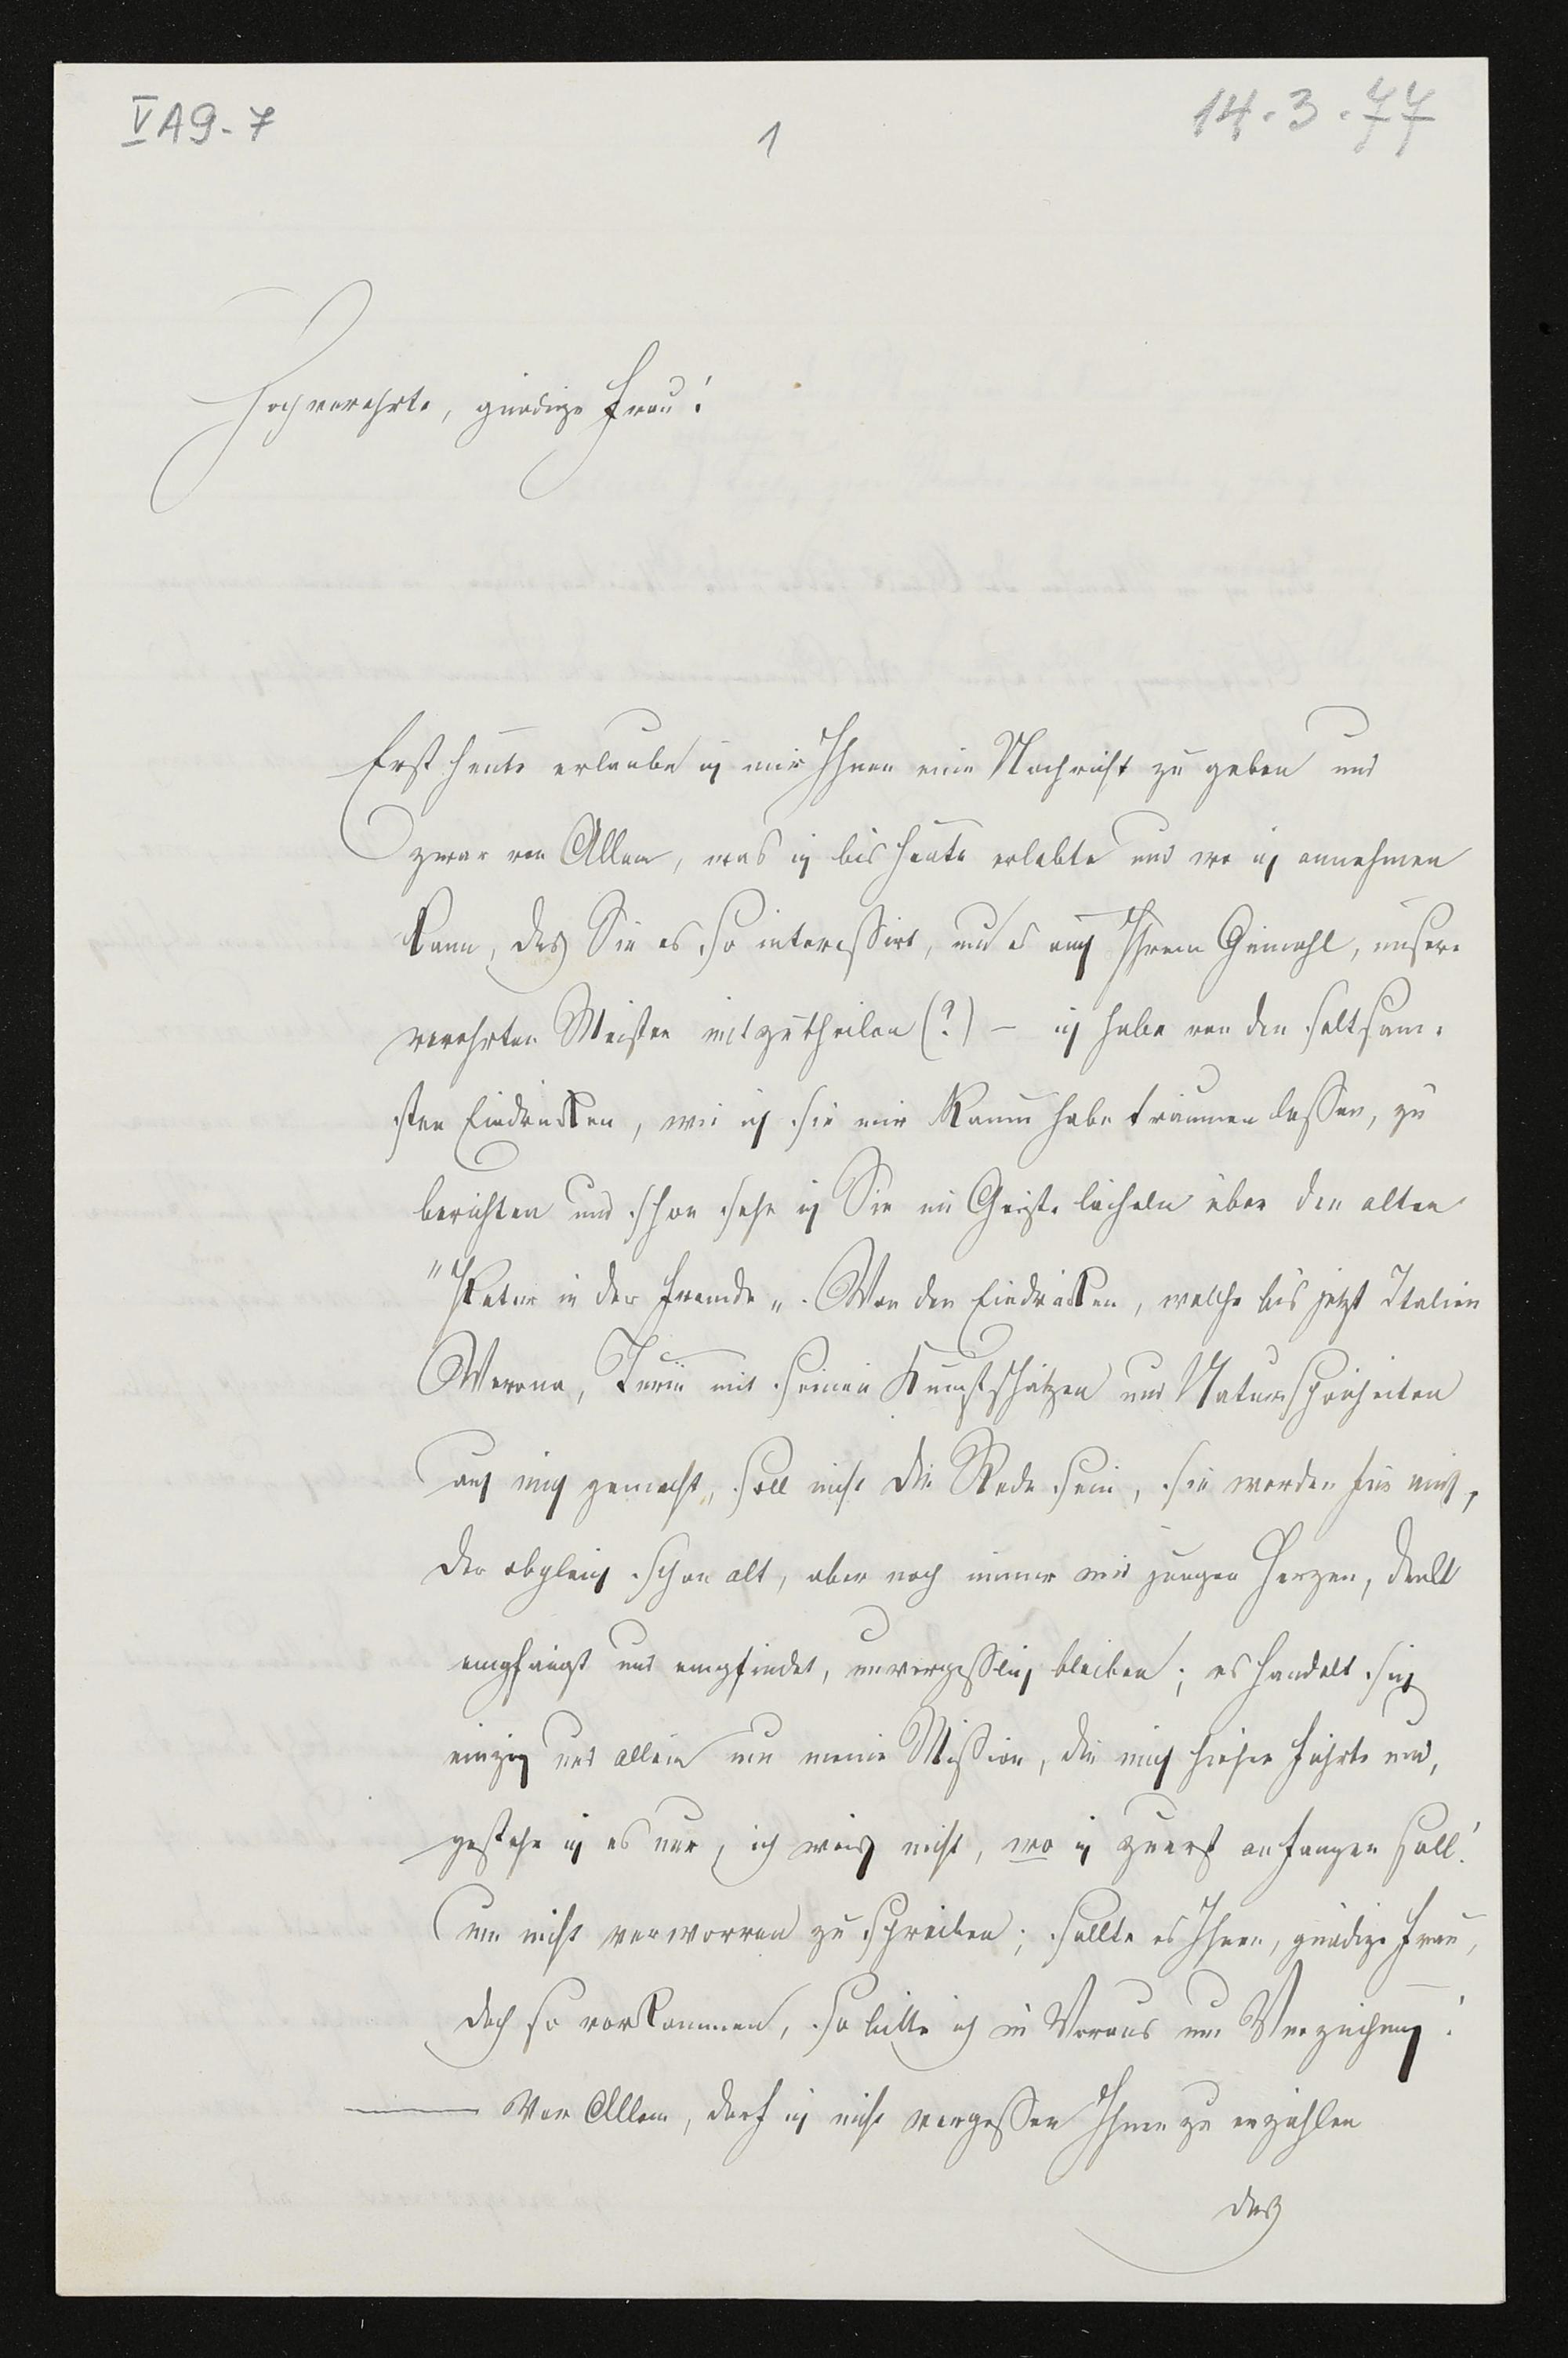 VA9-7
1
14.3.77
Hochverehrte, gnädige Frau!
Erst heute erlaube ich mir Ihnen eine Nachricht zu geben und
zwar von Allem, was ich bis heute erlebte und wo ich annehmen
kann, daß Sie es so interessirt, um es auch Ihrem Gemahl, unserem
verehrten Meister mitzutheilen (?) – ich habe von den seltsam-
sten Eindrücken, wie ich sie mir kaum habe träumen lassen, zu
berichten und schon sehe ich Sie im Geiste lächeln über den alten
"Peter in der Fremde". Von den Eindrücken, welche bis jetzt Italien
Verona, Turin mit seinen Kunstschätzen und Naturschönheiten
auf mich gemacht, soll nicht die Rede sein, sie werden für mich,
der obgleich schon alt, aber noch immer mit jungen Herzen, denkt
empfängt und empfindet, unvergesslich bleiben; es handelt sich
einzig und allein um meine Mission, die mich hieher führte und,
gestehe ich es nur, ich weiß nicht, wo ich zuerst anfangen soll!
um nicht verworren zu schreiben; sollte es Ihnen, gnädige Frau,
doch so vorkommen, so bitte ich im Voraus um Verzeihung!
— Vor Allem, darf ich nicht vergessen Ihnen zu erzählen
daß